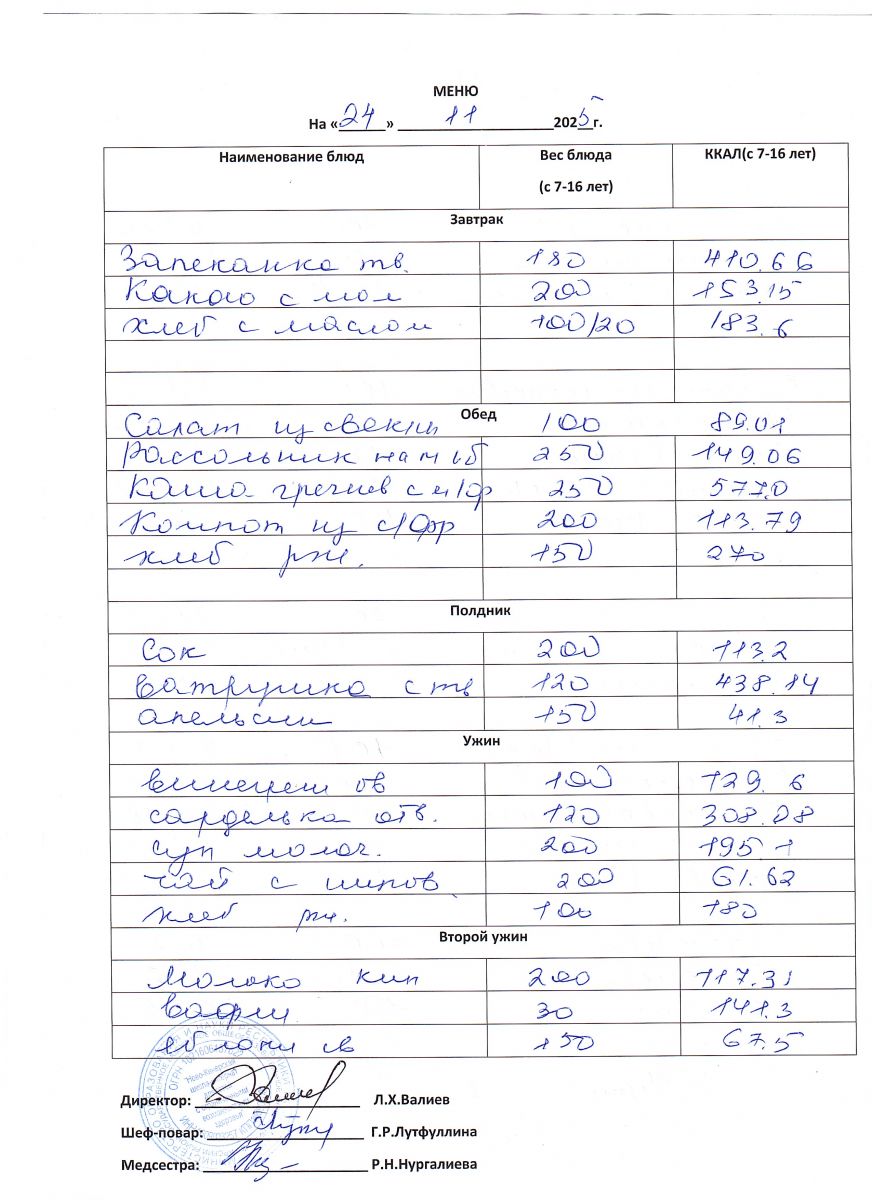 МЕНЮ
На «24» 11 2025г.
Наименование блюд Вес блюда (с 7-16 лет) ККАЛ(с 7-16 лет)
Завтрак
Запеканка тв. 180 410.66
Какао с мол 200 153.15
хлеб с маслом 100/20 183.6
Обед
Салат из свеклы 100 89.01
Рассольник на м/б 250 149.06
Каша гречнев с м/фр 250 577.0
Компот из с/фр 200 113.79
хлеб рж. 150 270
Полдник
Сок 200 113.2
Ватрушка с тв 120 438.14
апельсин 150 41.3
Ужин
винегрет ов 100 129.6
сарделька отв. 120 308.08
суп молоч. 200 195.1
чай с шипов 200 61.62
хлеб рж. 100 180
Второй ужин
Молоко кип 200 117.31
Вафли 30 141.3
яблоки св 150 67.5
Директор: Л.Х.Валиев
Шеф-повар: Г.Р.Лутфуллина
Медсестра: Р.Н.Нургалиева